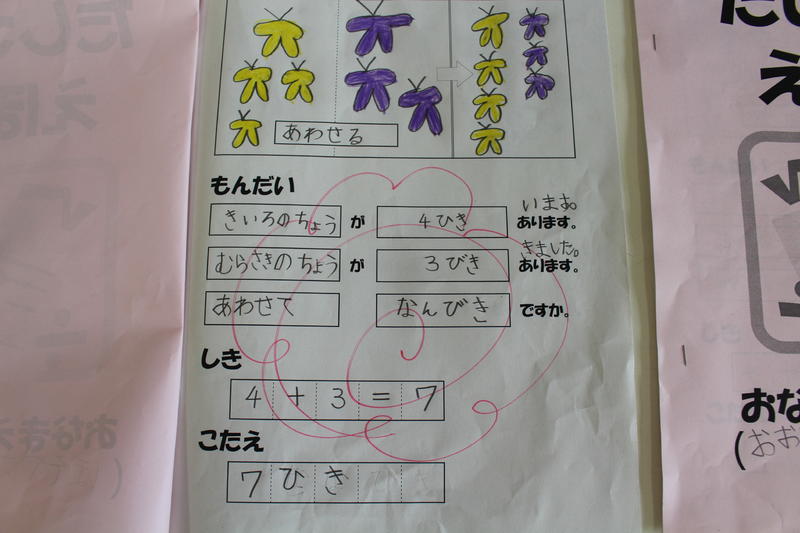 あわせる
もんだい
います。
きいろのちょう が 4ひき あります。
きました。
むらさきのちょう が 3びき あります。
あわせて なんびき ですか。
しき
4+3=7
こたえ
7ひき
え
おな
(おお